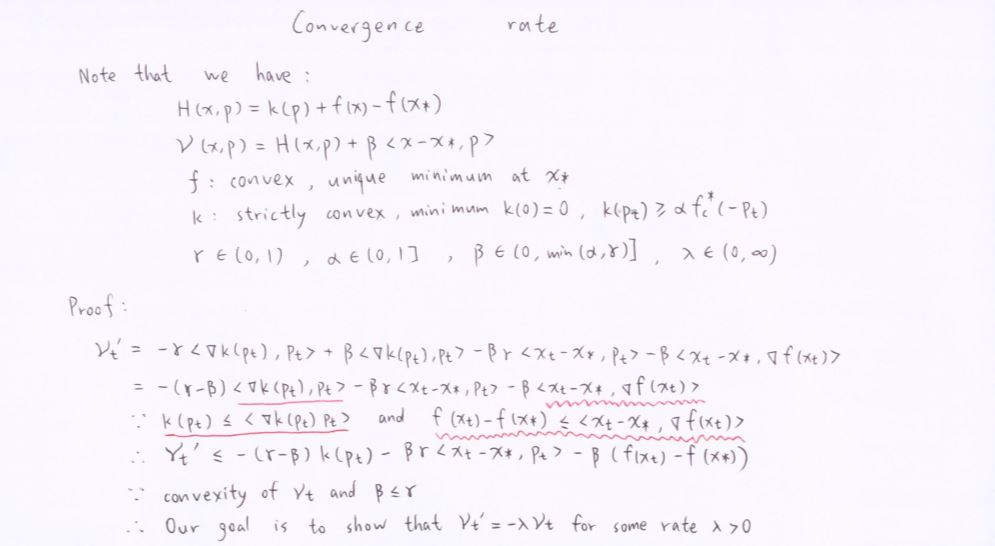 Convergence rate
Note that we have :
H(x,p) = k(p) + f(x) - f(x*)
V(x,p) = H(x,p) + β <x-x*, p>
f : convex , unique minimum at x*
k : strictly convex , minimum k(0)=0 , k(pt) ≥ α fc*(-pt)
γ ∈ (0,1) , α ∈ (0,1] , β ∈ (0, min(α,γ)] , λ ∈ (0,∞)
Proof :
Vt' = -γ <∇k(pt), pt> + β <∇k(pt), pt> - βγ <xt-x*, pt> - β <xt-x*, ∇f(xt)>
= -(γ-β) <∇k(pt), pt> - βγ <xt-x*, pt> - β <xt-x*, ∇f(xt)>
∵ k(pt) ≤ <∇k(pt) pt> and f(xt)-f(x*) ≤ <xt-x*, ∇f(xt)>
∴ Vt' ≤ -(γ-β) k(pt) - βγ <xt-x*, pt> - β (f(xt)-f(x*))
∵ convexity of Vt and β≤γ
∴ Our goal is to show that Vt' = -λVt for some rate λ>0